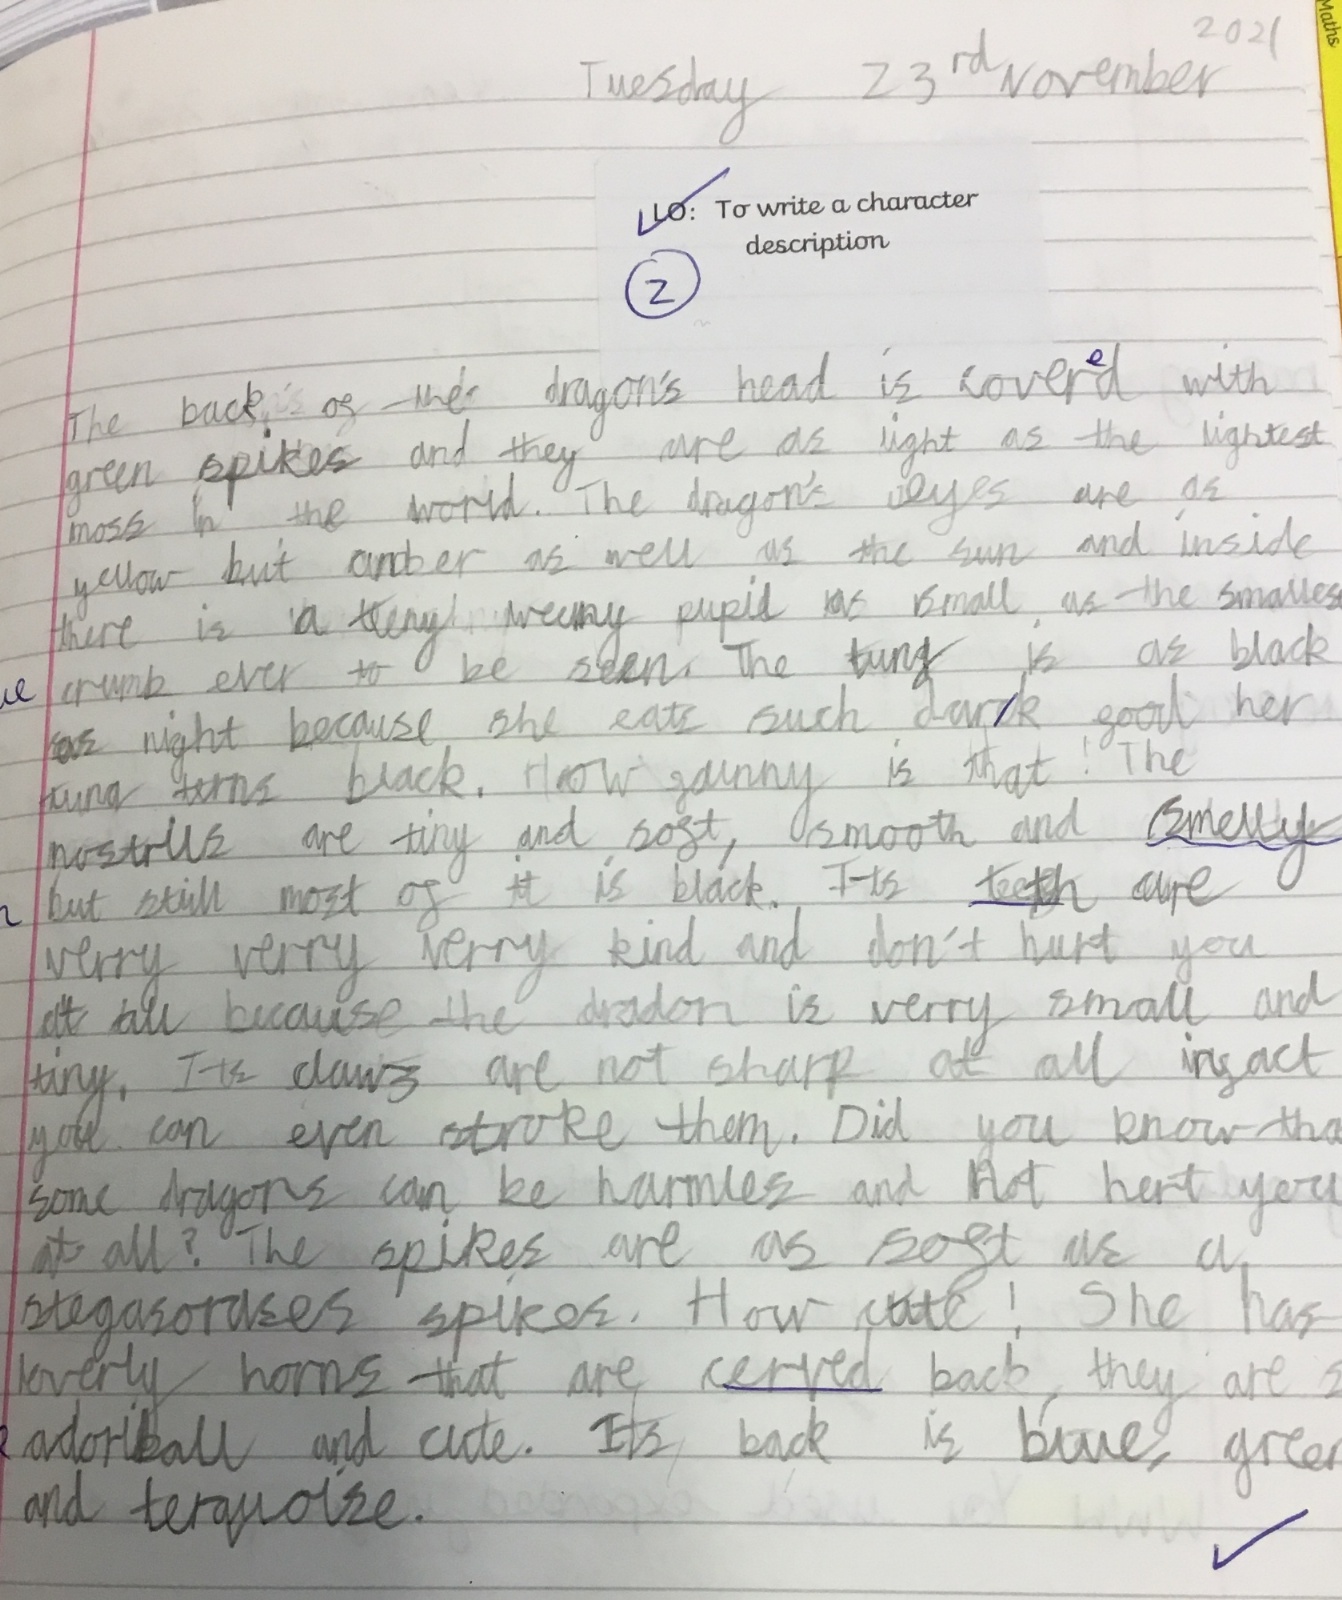 Maths
2021
Tuesday 23rd November
LO: To write a character
description
2
The back of the dragon's head is covered with
green spikes and they are as light as the lightest
moss in the world. The dragon's eyes are as
yellow but amber as well as the sun and inside
there is a teny weeny pupil as small as the smalles
crumb ever to be seen. The tung is as black
as night because she eats such dark food her
tung terns black. How funny is that! The
nostrils are tiny and soft, smooth and smelly
but still most of it is black. Its teeth are
verry verry verry kind and don't hurt you
at all because the dradon is verry small and
tiny. Its claws are not sharp at all infact
you can even stroke them. Did you know tha
some dragons can be harmles and not hert you
at all? The spikes are as soft as a
stegasoruses spikes. How cute! She has
loverly horns that are cerved back, they are s
adoriball and cute. Its back is blue, green
and terquoise.